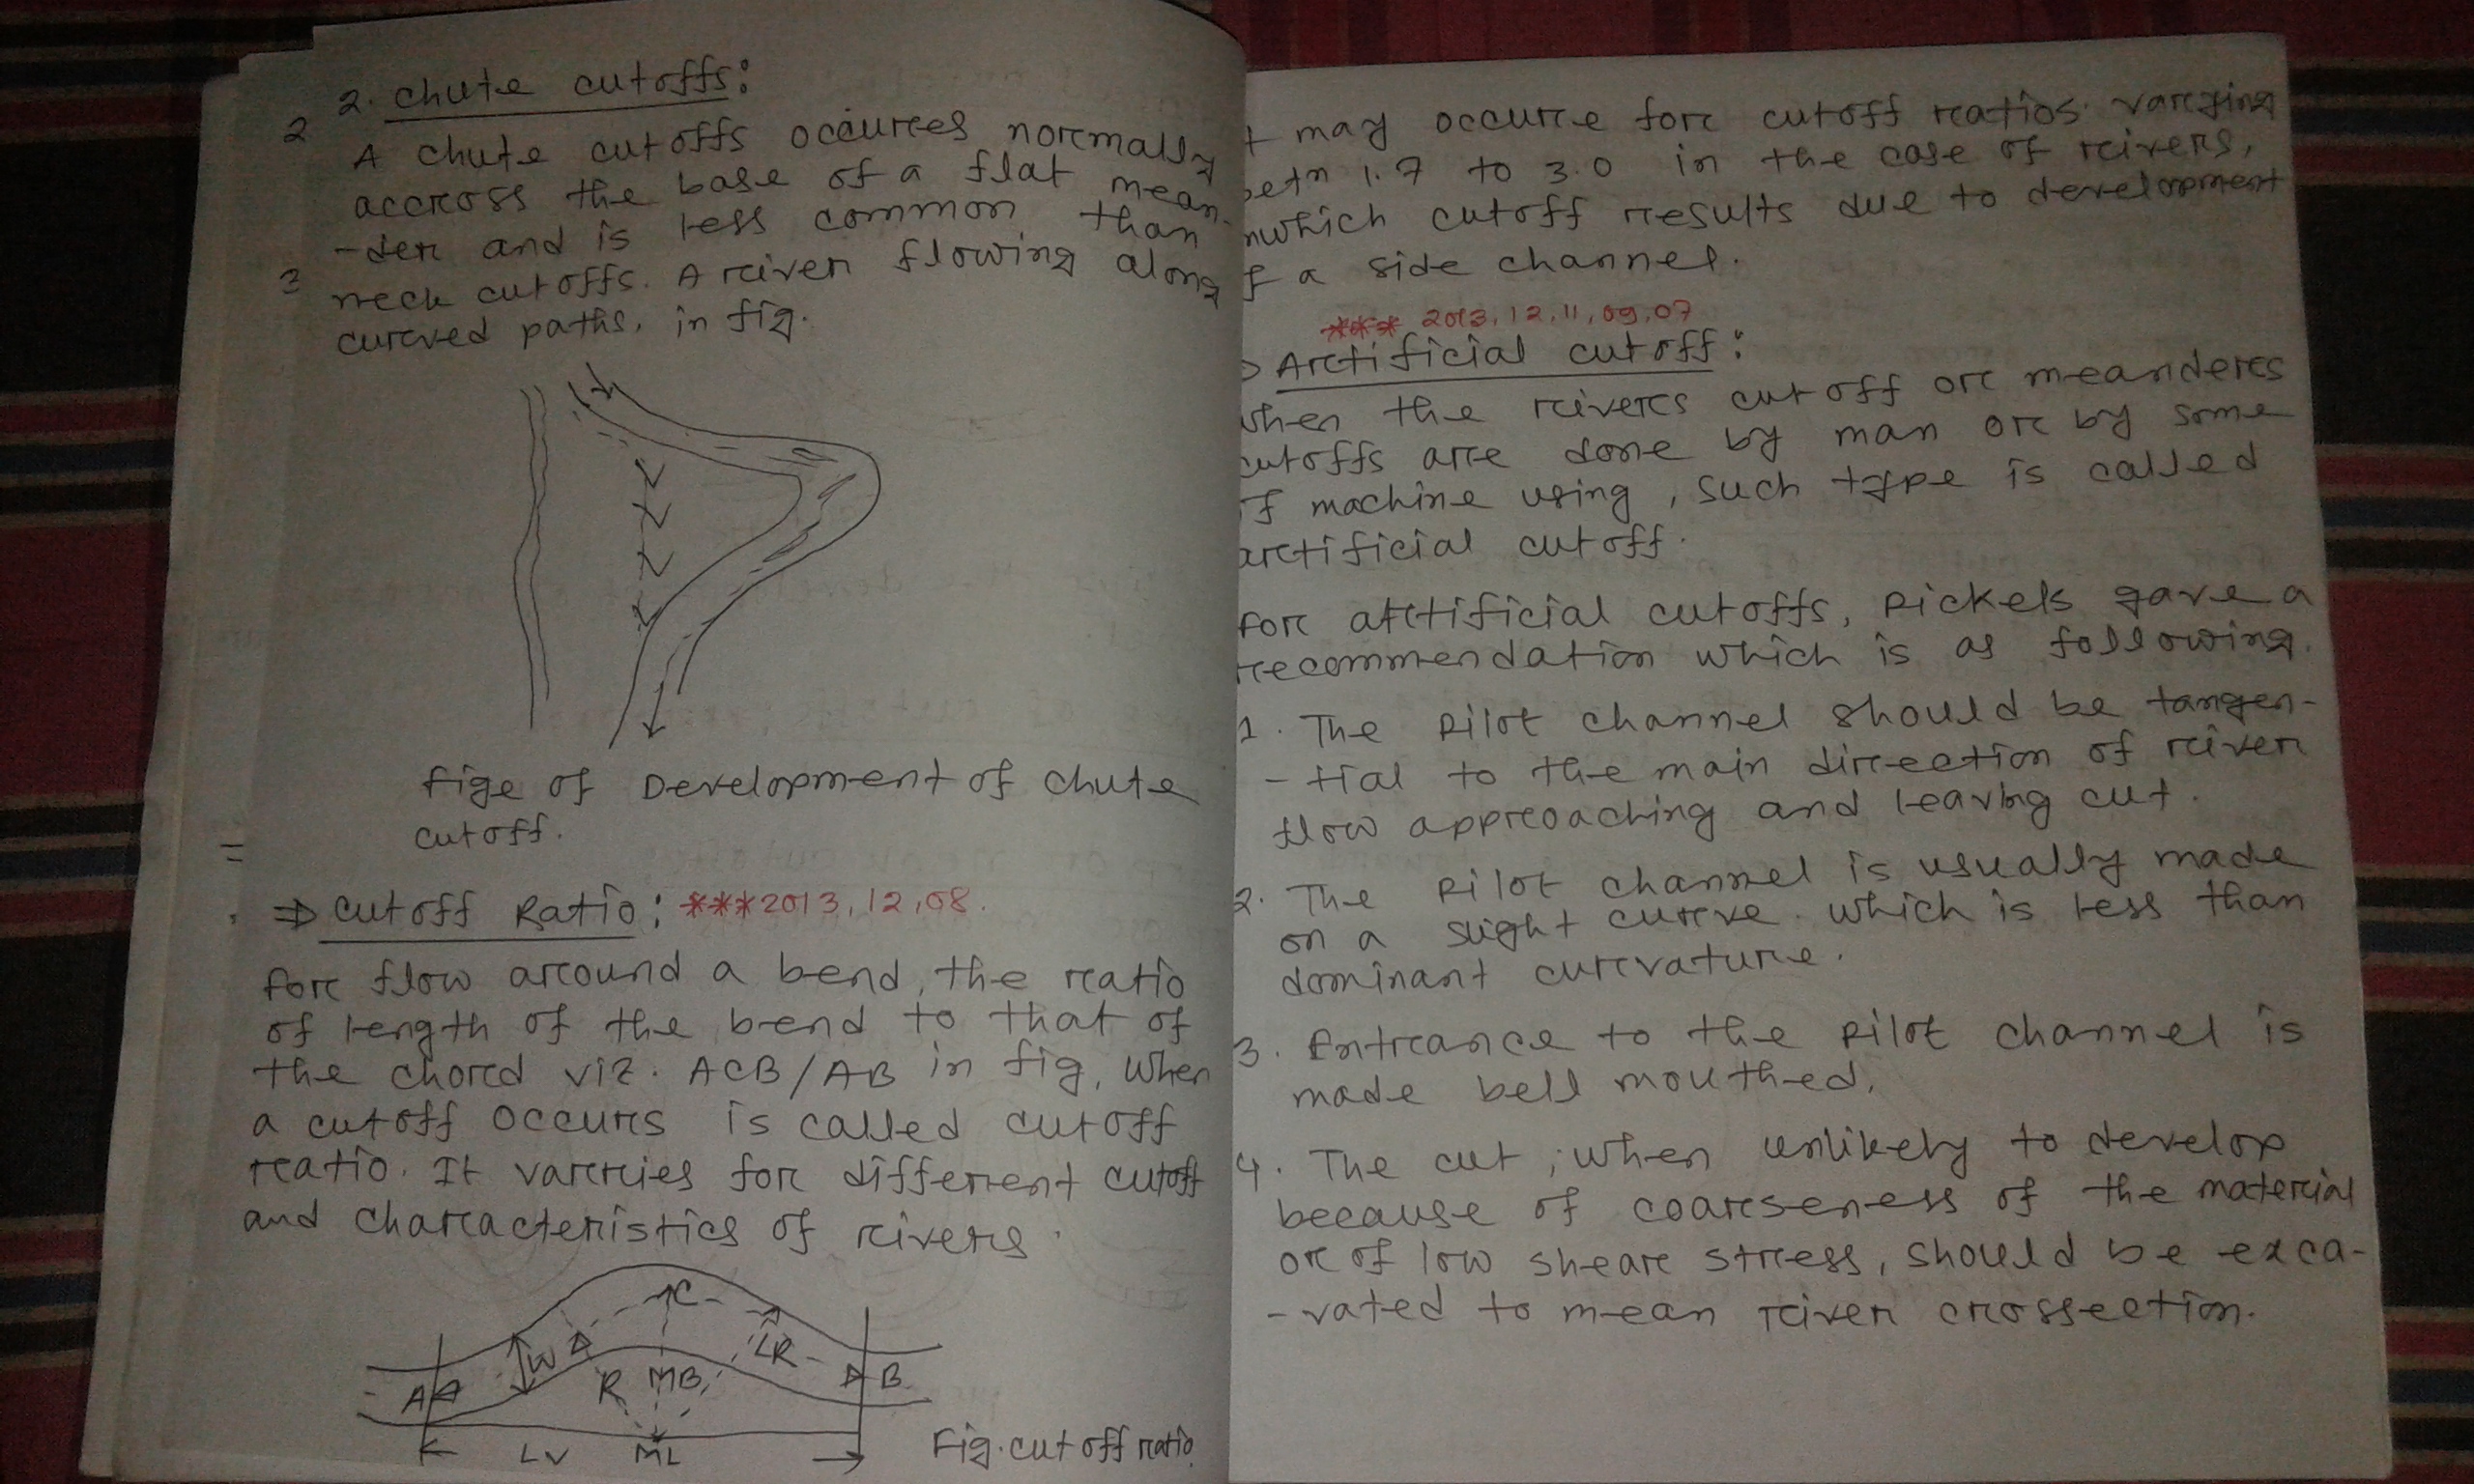 2. Chute cutoffs:
2
A chute cutoffs occurres normally
accross the base of a flat mean-
-der and is less common than
3
neck cutoffs. A river flowing along
curved paths, in fig.
fige of Development of chute
cutoff.
=
⇒ Cutoff Ratio: ***2013, 12, 08.
for flow around a bend, the ratio
of length of the bend to that of
the chord viz. ACB/AB in fig, when
a cutoff occurs is called cutoff
ratio. It varries for different cutoff
and characteristics of rivers.
C
W
R MB
LR
A
B
LV
ML
Fig. cutoff ratio
t may occure for cutoff ratios varying
betn 1.7 to 3.0 in the case of rivers,
which cutoff results due to development
f a side channel.
*** 2013, 12, 11, 09, 07
Artificial cutoff:
when the rivers cutoff or meanders
cutoffs are done by man or by some
of machine using, such type is called
artificial cutoff.
for artificial cutoffs, Pickels gave a
recommendation which is as following.
1. The Pilot channel should be tangen-
-tial to the main direction of river
flow approaching and leaving cut.
2. The Pilot channel is usually made
on a slight curve. which is less than
dominant curvature.
3. Entrance to the Pilot channel is
made bell mouthed.
4. The cut, when unlikely to develop
because of coarseness of the material
or of low shear stress, should be exca-
-vated to mean river crossection.